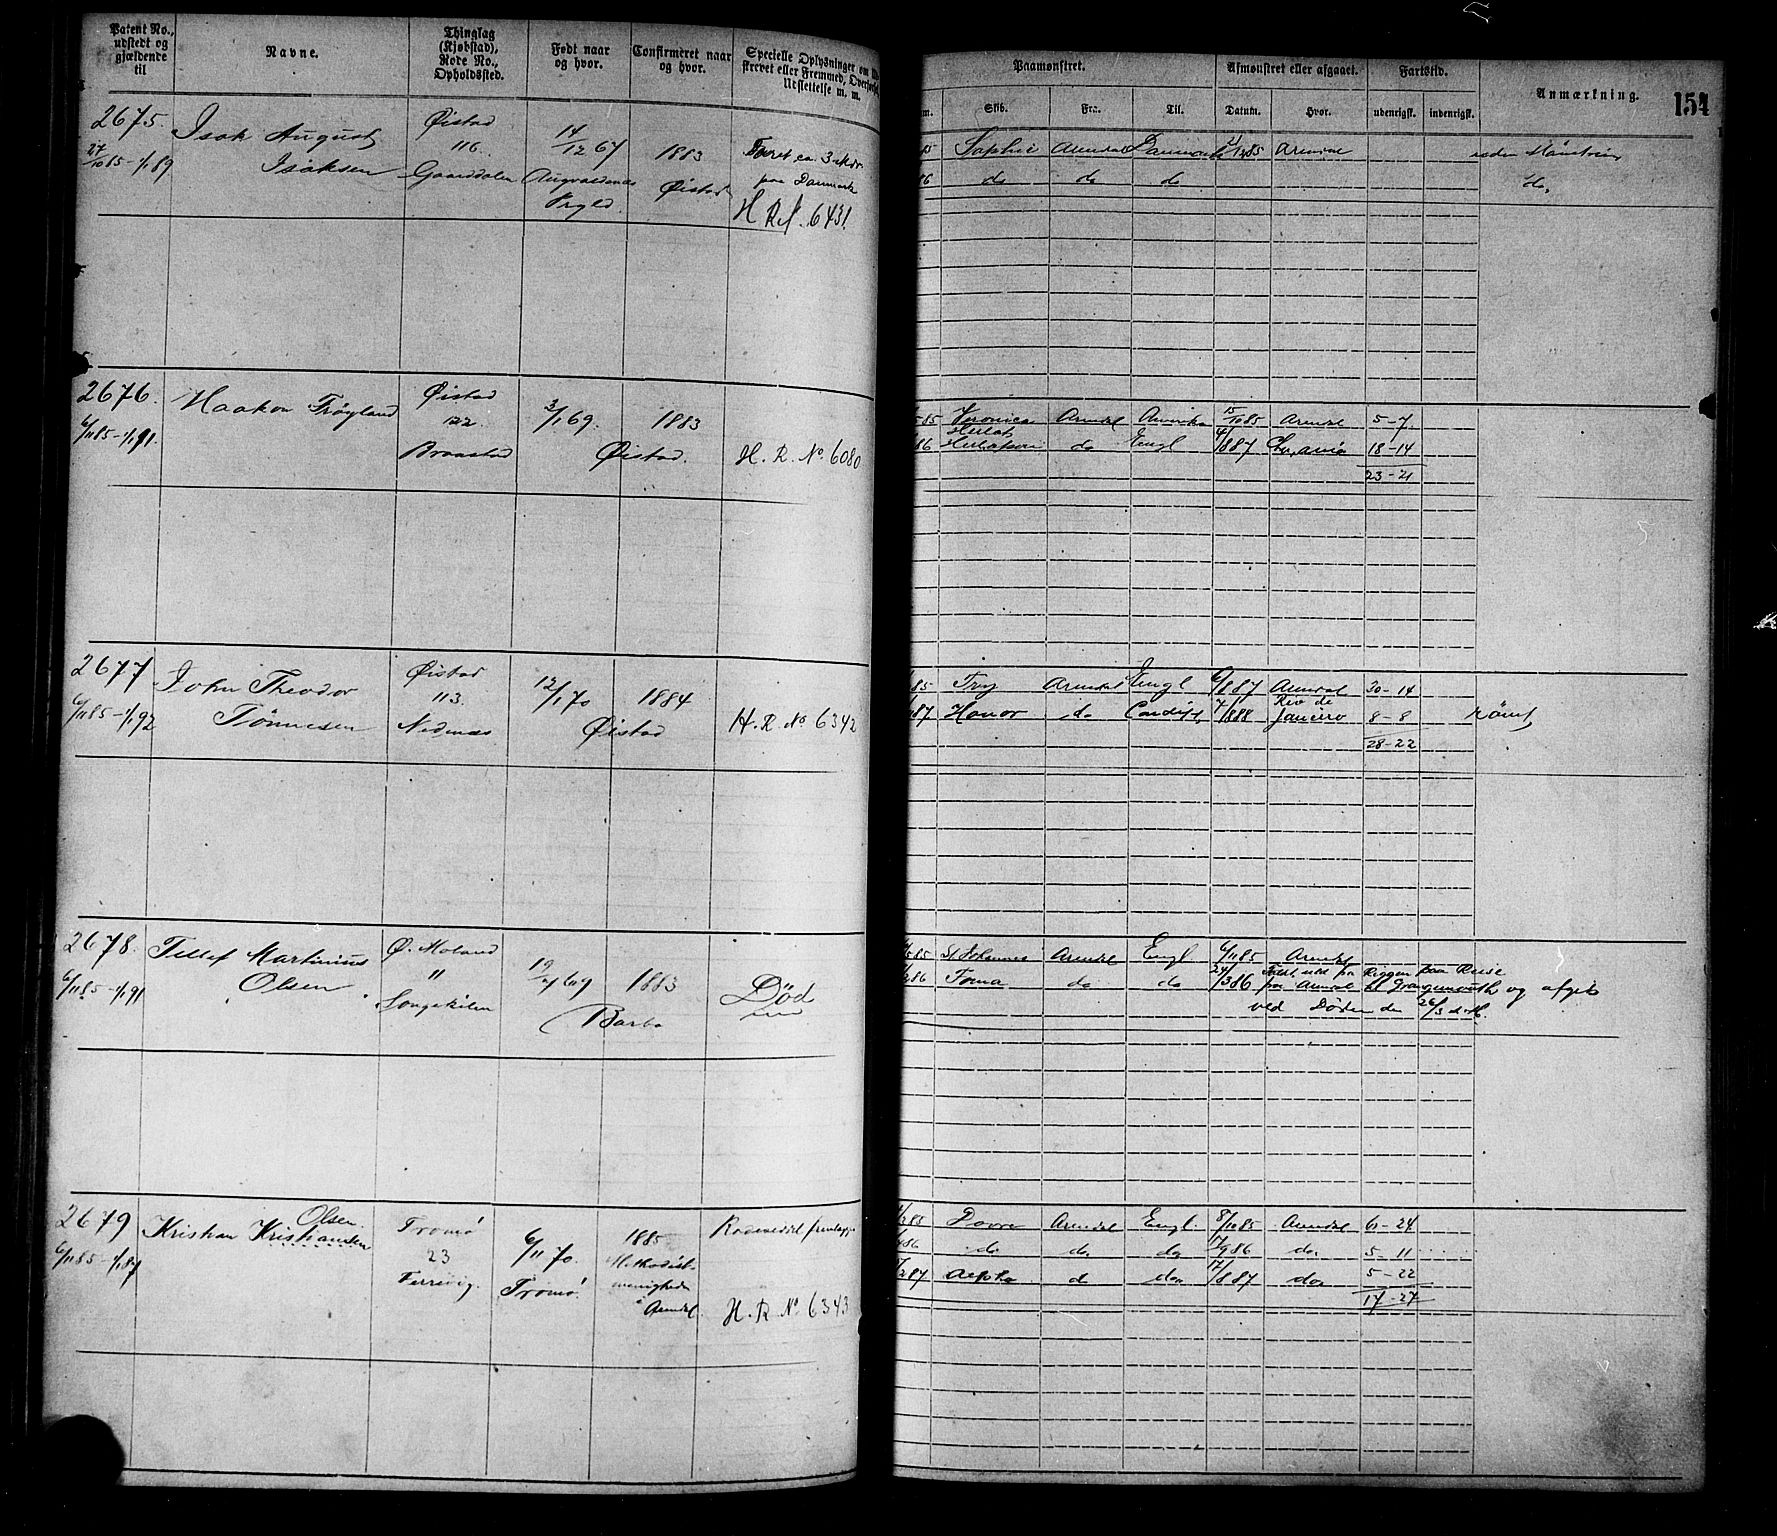 Patent No., udstedt og gjældende til
Navne.
Thinglag (Kjøbstad), Rode No., Opholdssted.
Født naar og hvor.
Confirmeret naar og hvor.
Specielle Oplysninger om
strevet eller Fremmed,
Udslettelse m. m.
Paamønstret.
Skib.
Fra.
Til.
Afmønstret eller afgaaet.
Datum.
Hvor.
Fartstid.
udenrigsk.
indenrigsk.
Anmærkning.
154
2675.
27/10 85-1/1 89
Isak August
Isaksen
Øistad
116.
Gaarddalen
14/12 67
1883
Øistad
Faret ca. 3
paa Danmark
H Rel. 6431.
85 Sophie Arendal Danmark 85 Arendal uden Mønstring
86 do do do do.
2676.
6/11 85-1/1 91.
Haakon Frøyland
Øistad
122.
Braastad
3/1 69.
1883
Øistad.
H. R. No. 6080
85 Veronica Arendal Amerika 15/10 85 Arendal 5-7
86 do Engl 6/8 87 18-14
23-21
2677
6/11 85-1/1 92
John Theodor
Tønnesen
Øistad
113.
Nedenæs
12/1 70
1884
Øistad
H. R. No. 6342
85 Fry Arendal Engl 6/8 87 Arendal 20-14
87 Honor do Cardiff 7/8 88 Rio de Janeiro 8-8 Rømt
28-22
2678.
6/11 85-1/1 91
Tellef Martinius
Olsen
Ø. Moland
"
Songekilen
69
1883
Barbo
Død
85 St Johannes Arendal Engl 6/11 85 Arendal
86 Toma do do 24/3 86 Faldt ned fra Riggen paa Reise
fra Arendal til Grangemouth og afgik
ved Døden den 26/3 d. A.
2679
6/11 85-1/1 87
Kristian Kristiansen
Olsen.
Tromø
23
Færvig.
6/11 70.
Tromø.
1885
Methodist-
menigheden
i Arendal.
Rodeseddel fremlagt
H. R. No 6343
85 Dovre Arendal Engl. 8/11 85 Arendal 6-24
86 do do do 17/9 86 do. 5-11
87 Alpha d do 17/8 87 do 5-22
17-27